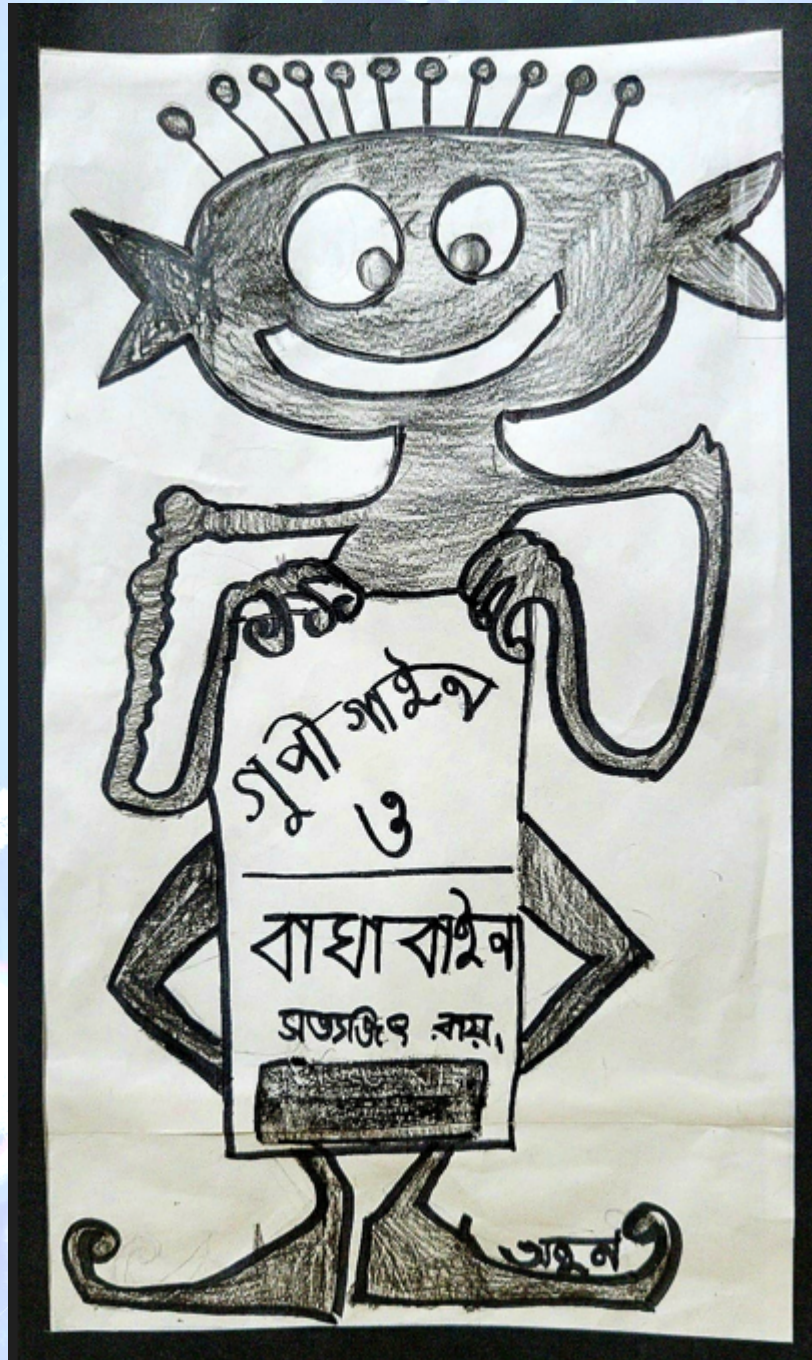 গুপী গাইন
ও
বাঘা বাইন
সত্যজিৎ রায়,